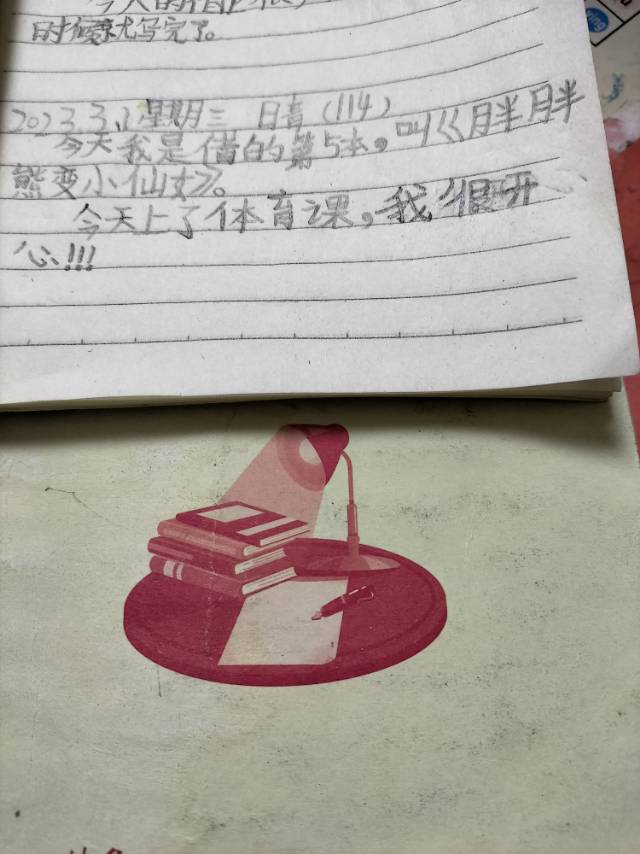 今天的
的时候就写完了。
2023.3.1 星期三 日音 (114)
今天我是借的第5本。叫《胖胖
熊变小仙女》。
今天上了体育课，我很开
心!!!